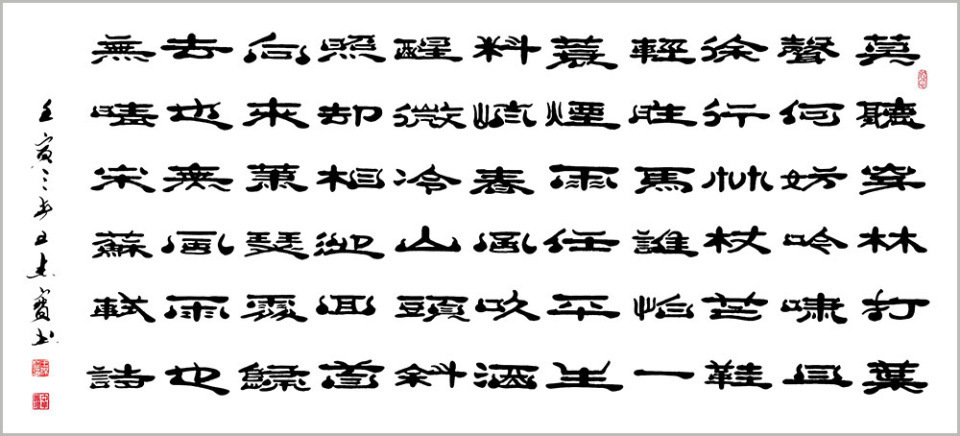 莫聽穿林打葉
聲何妨吟嘯且
徐行竹杖芒鞋
輕胜馬誰怕一
蓑煙雨任平生
料峭春風吹酒
醒微冷山頭斜
照却相迎回首
向來蕭瑟處歸
去也無風雨也
無晴宋蘇軾詩
壬寅之春日